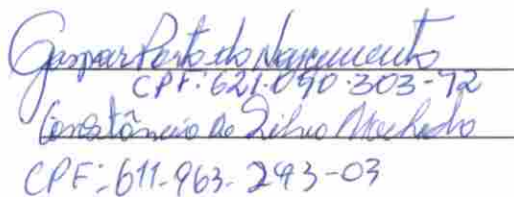 Gaspar Porto do Nascimento
CPF: 621.090.303-72
Constâncio da Silva Machado
CPF: 611.963.293-03